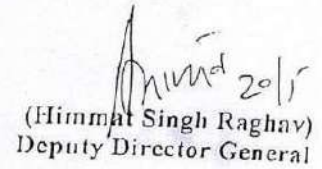 Himmat 20/5
(Himmat Singh Raghav)
Deputy Director General